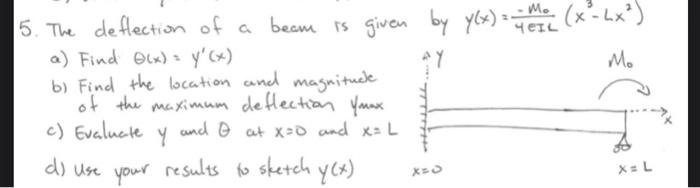 5. The deflection of a beam is given by y(x) = -M₀/4EIL (x³ - Lx²)
a) Find θ(x) = y'(x)
b) Find the location and magnitude
of the maximum deflection ymax
c) Evaluate y and θ at x=0 and x=L
d) Use your results to sketch y(x)
Y
M₀
x
x=0
x=L